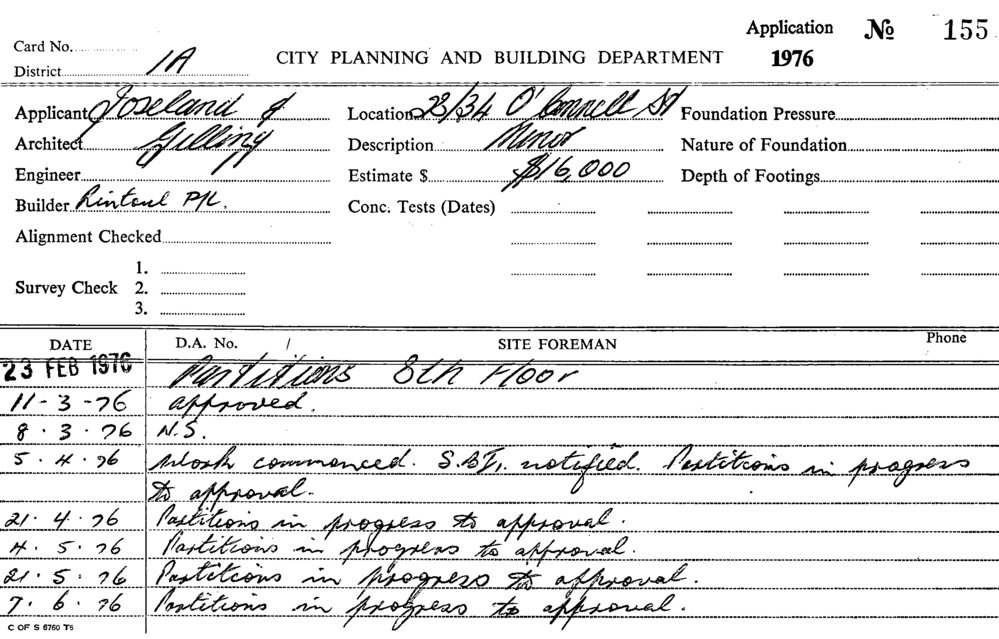 Application № 155
Card No.
1976
District 1A
CITY PLANNING AND BUILDING DEPARTMENT
Applicant Joseland & Location 28/34 O'Connell St Foundation Pressure
Architect Gilling Description Minor Nature of Foundation
Engineer Estimate $ $16,000 Depth of Footings
Builder Rintoul P/L. Conc. Tests (Dates)
Alignment Checked
1.
Survey Check 2.
3.
DATE D.A. No. / SITE FOREMAN Phone
23 FEB 1976 Partitions 8th Floor
11-3-76 approved.
8.3.76 N.S.
5.4.76 Work commenced. notified. Partitions in progress
to approval.
21.4.76 Partitions in progress to approval.
4.5.76 Partitions in progress to approval.
21.5.76 Partitions in progress to approval.
7.6.76 Partitions in progress to approval.
C OF S 6760 T5